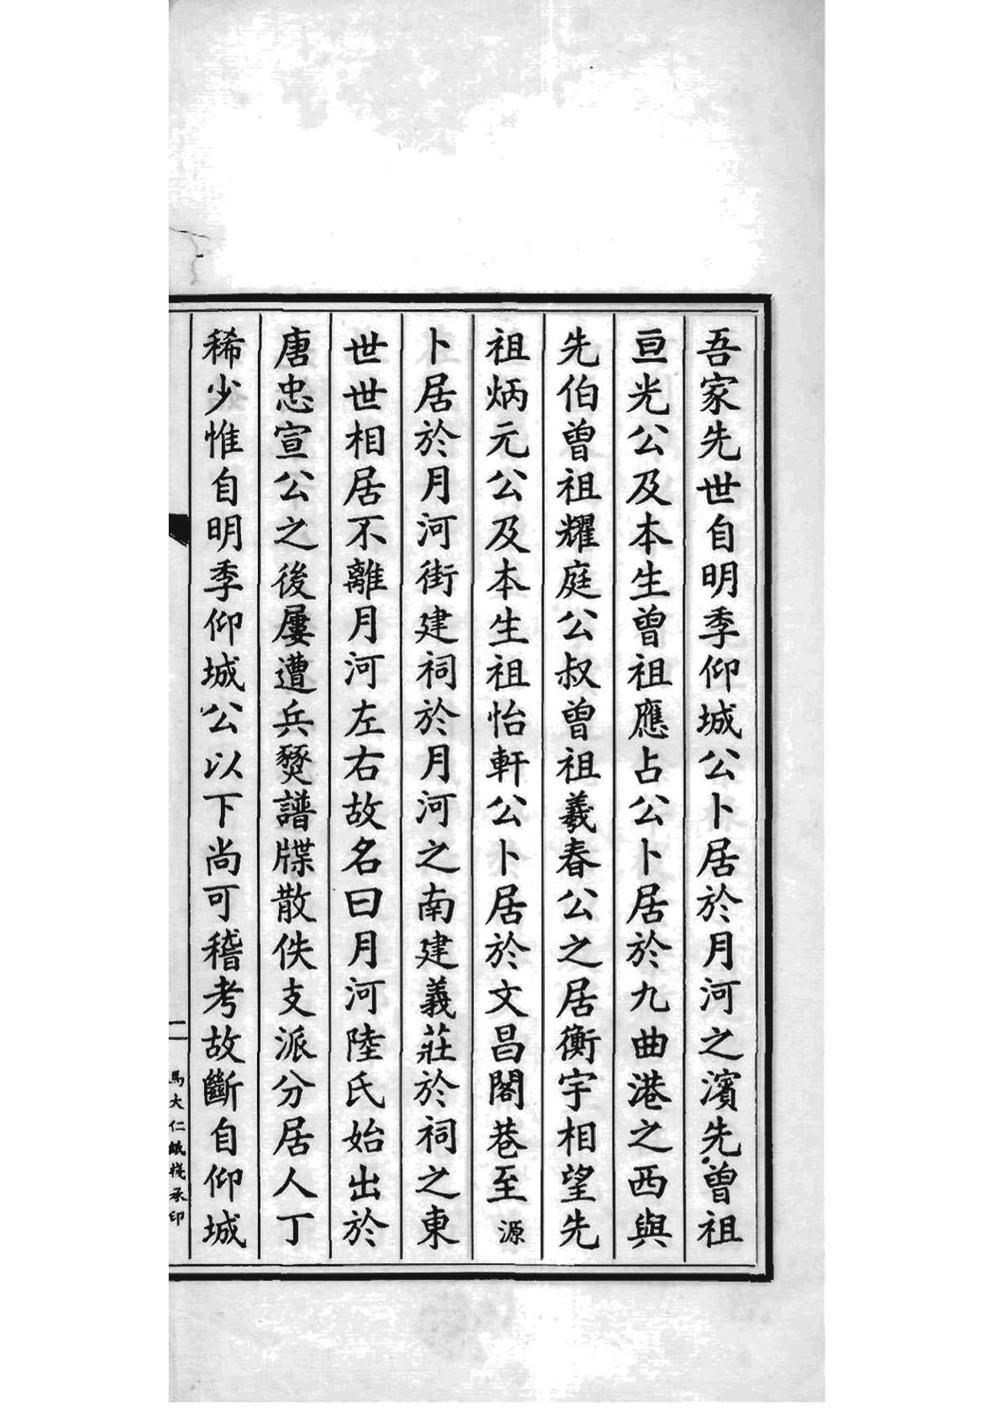 吾家先世自明季仰城公卜居於月河之濱先曾祖
亘光公及本生曾祖應占公卜居於九曲港之西與
先伯曾祖耀庭公叔曾祖羲春公之居衡宇相望先
祖炳元公及本生祖怡軒公卜居於文昌閣巷至源
卜居於月河街建祠於月河之南建義莊於祠之東
世世相居不離月河左右故名曰月河陸氏始出於
唐忠宣公之後屢遭兵燹譜牒散佚支派分居人丁
稀少惟自明季仰城公以下尚可稽考故斷自仰城
二
馬大仁紙棧承印